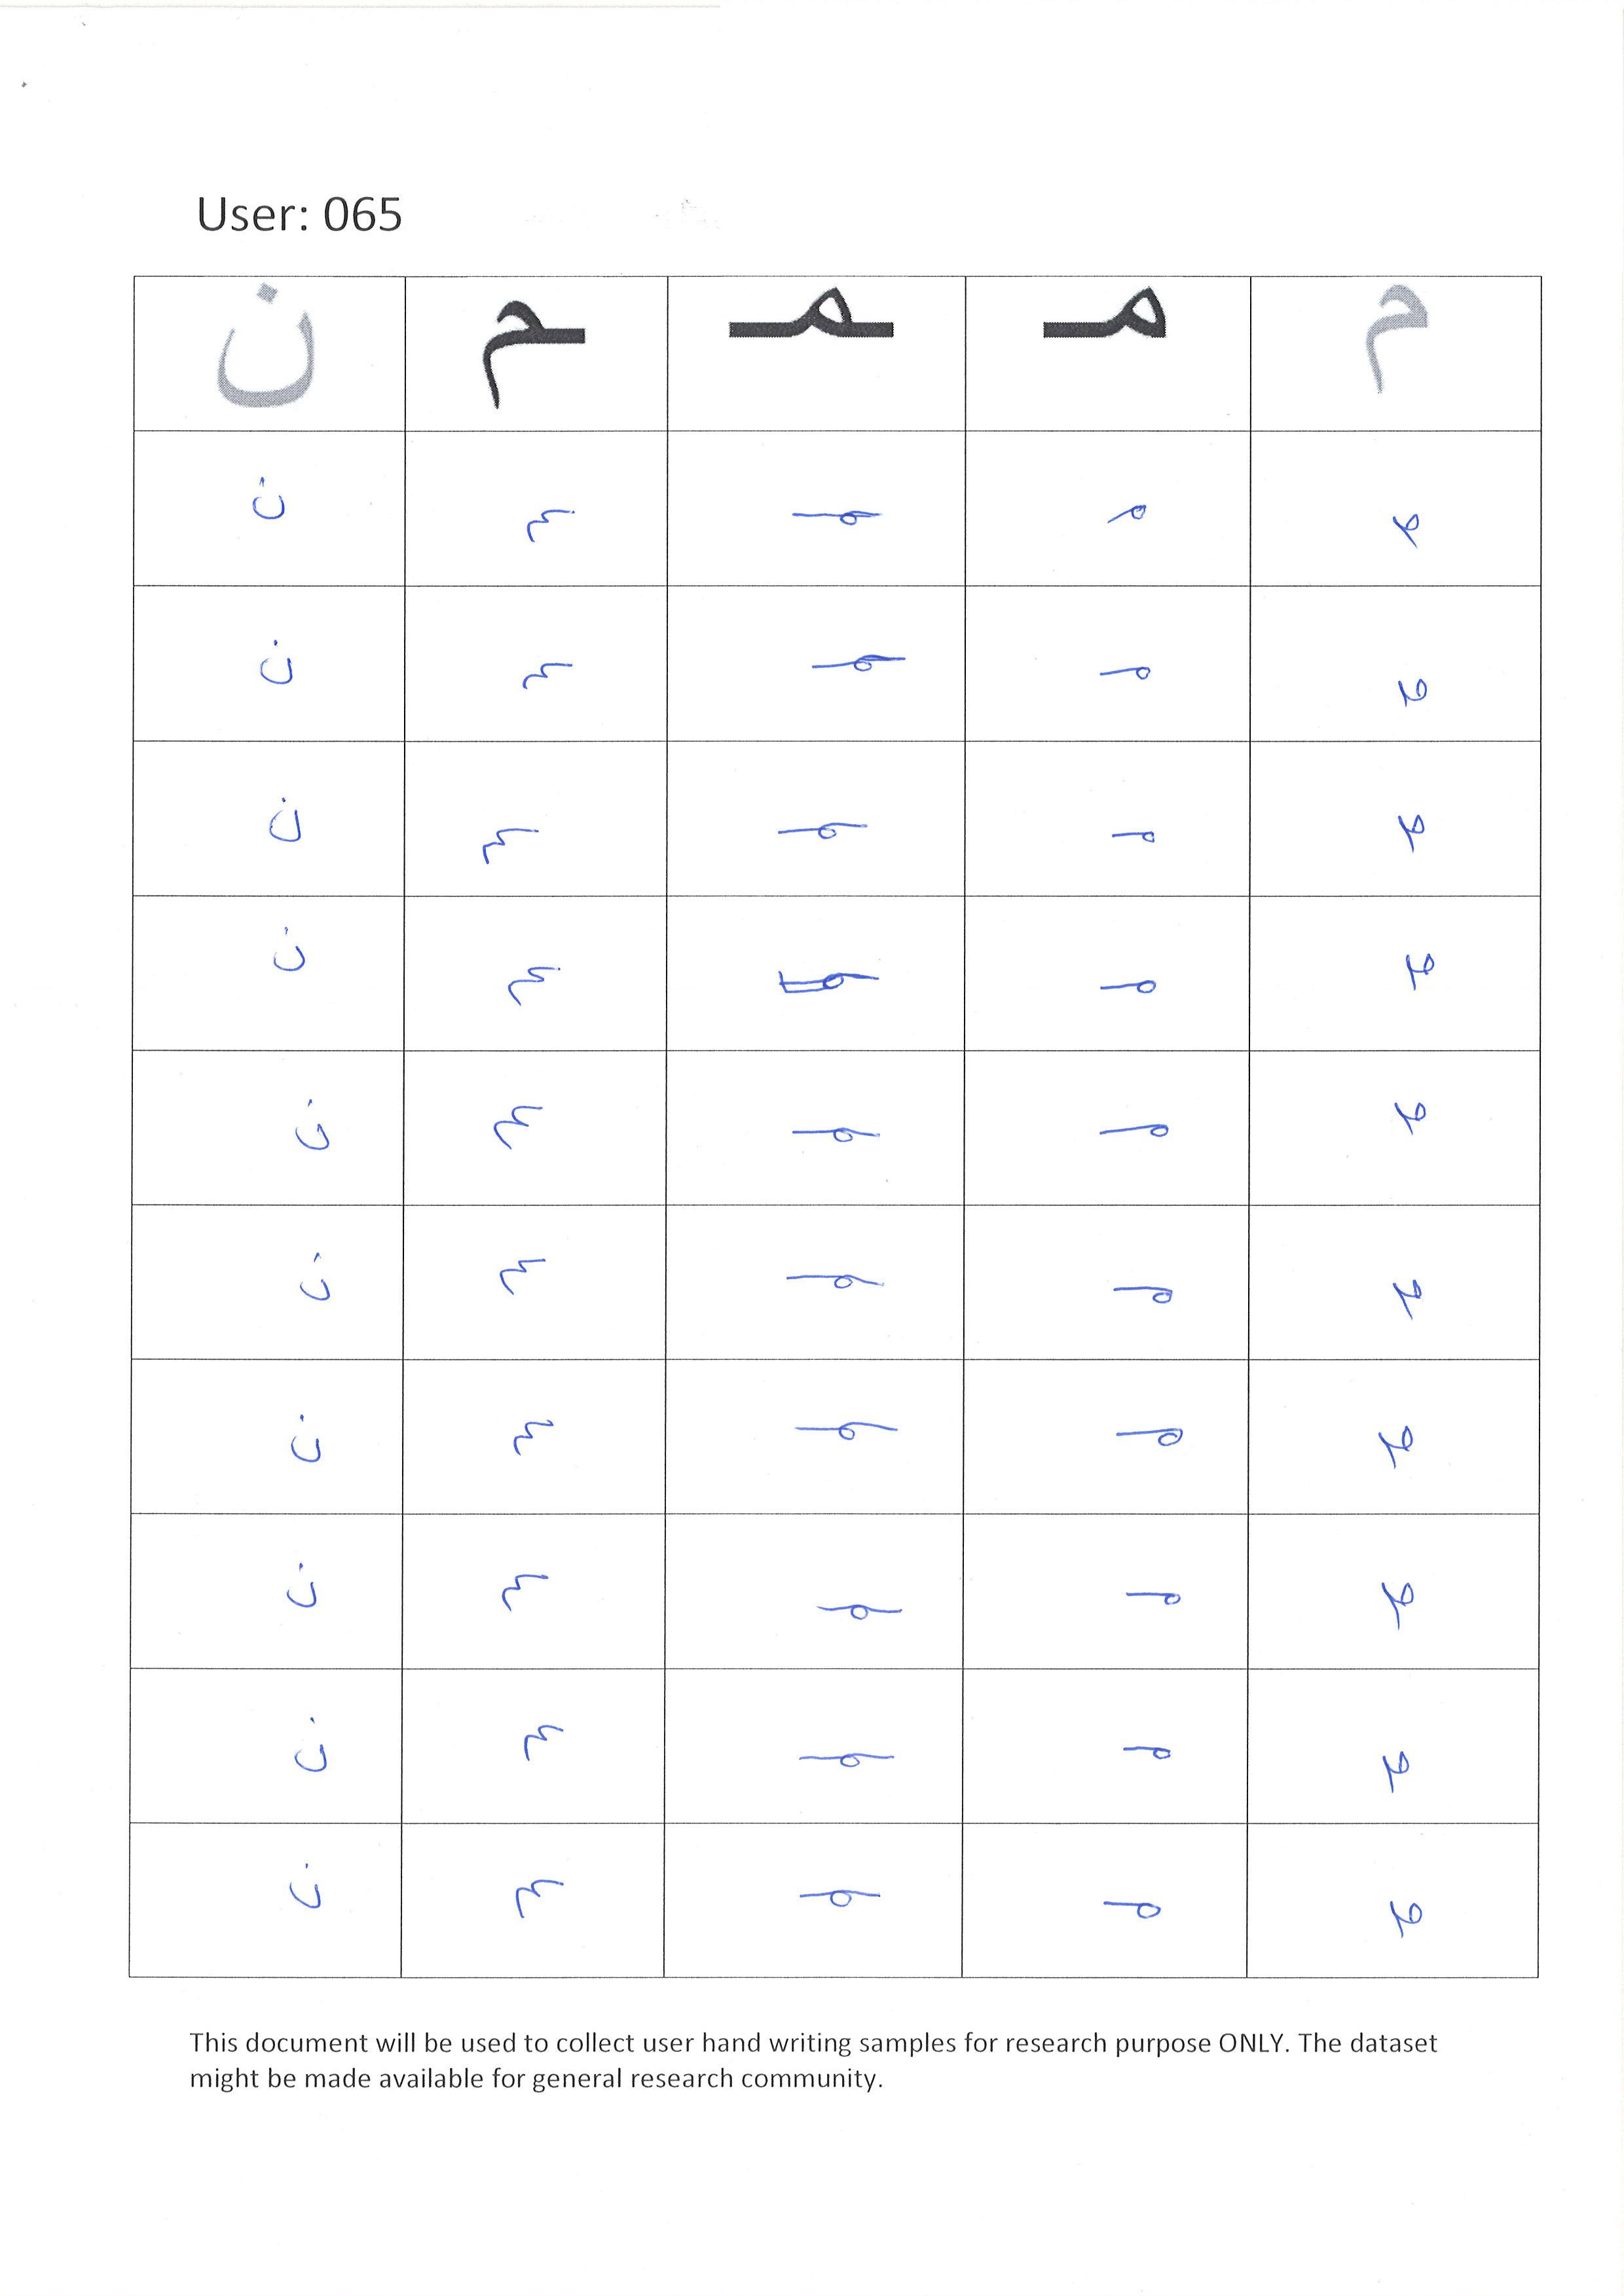 User: 065
م مـ ـمـ ـم ن
م مـ ـمـ ـم ن
م مـ ـمـ ـم ن
م مـ ـمـ ـم ن
م مـ ـمـ ـم ن
م مـ ـمـ ـم ن
م مـ ـمـ ـم ن
م مـ ـمـ ـم ن
م مـ ـمـ ـم ن
م مـ ـمـ ـم ن
م مـ ـمـ ـم ن
This document will be used to collect user hand writing samples for research purpose ONLY. The dataset
might be made available for general research community.